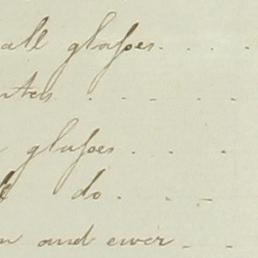 all glaſses. . . .
. . . .
glaſses . . .
do. . . .
and ewer - -